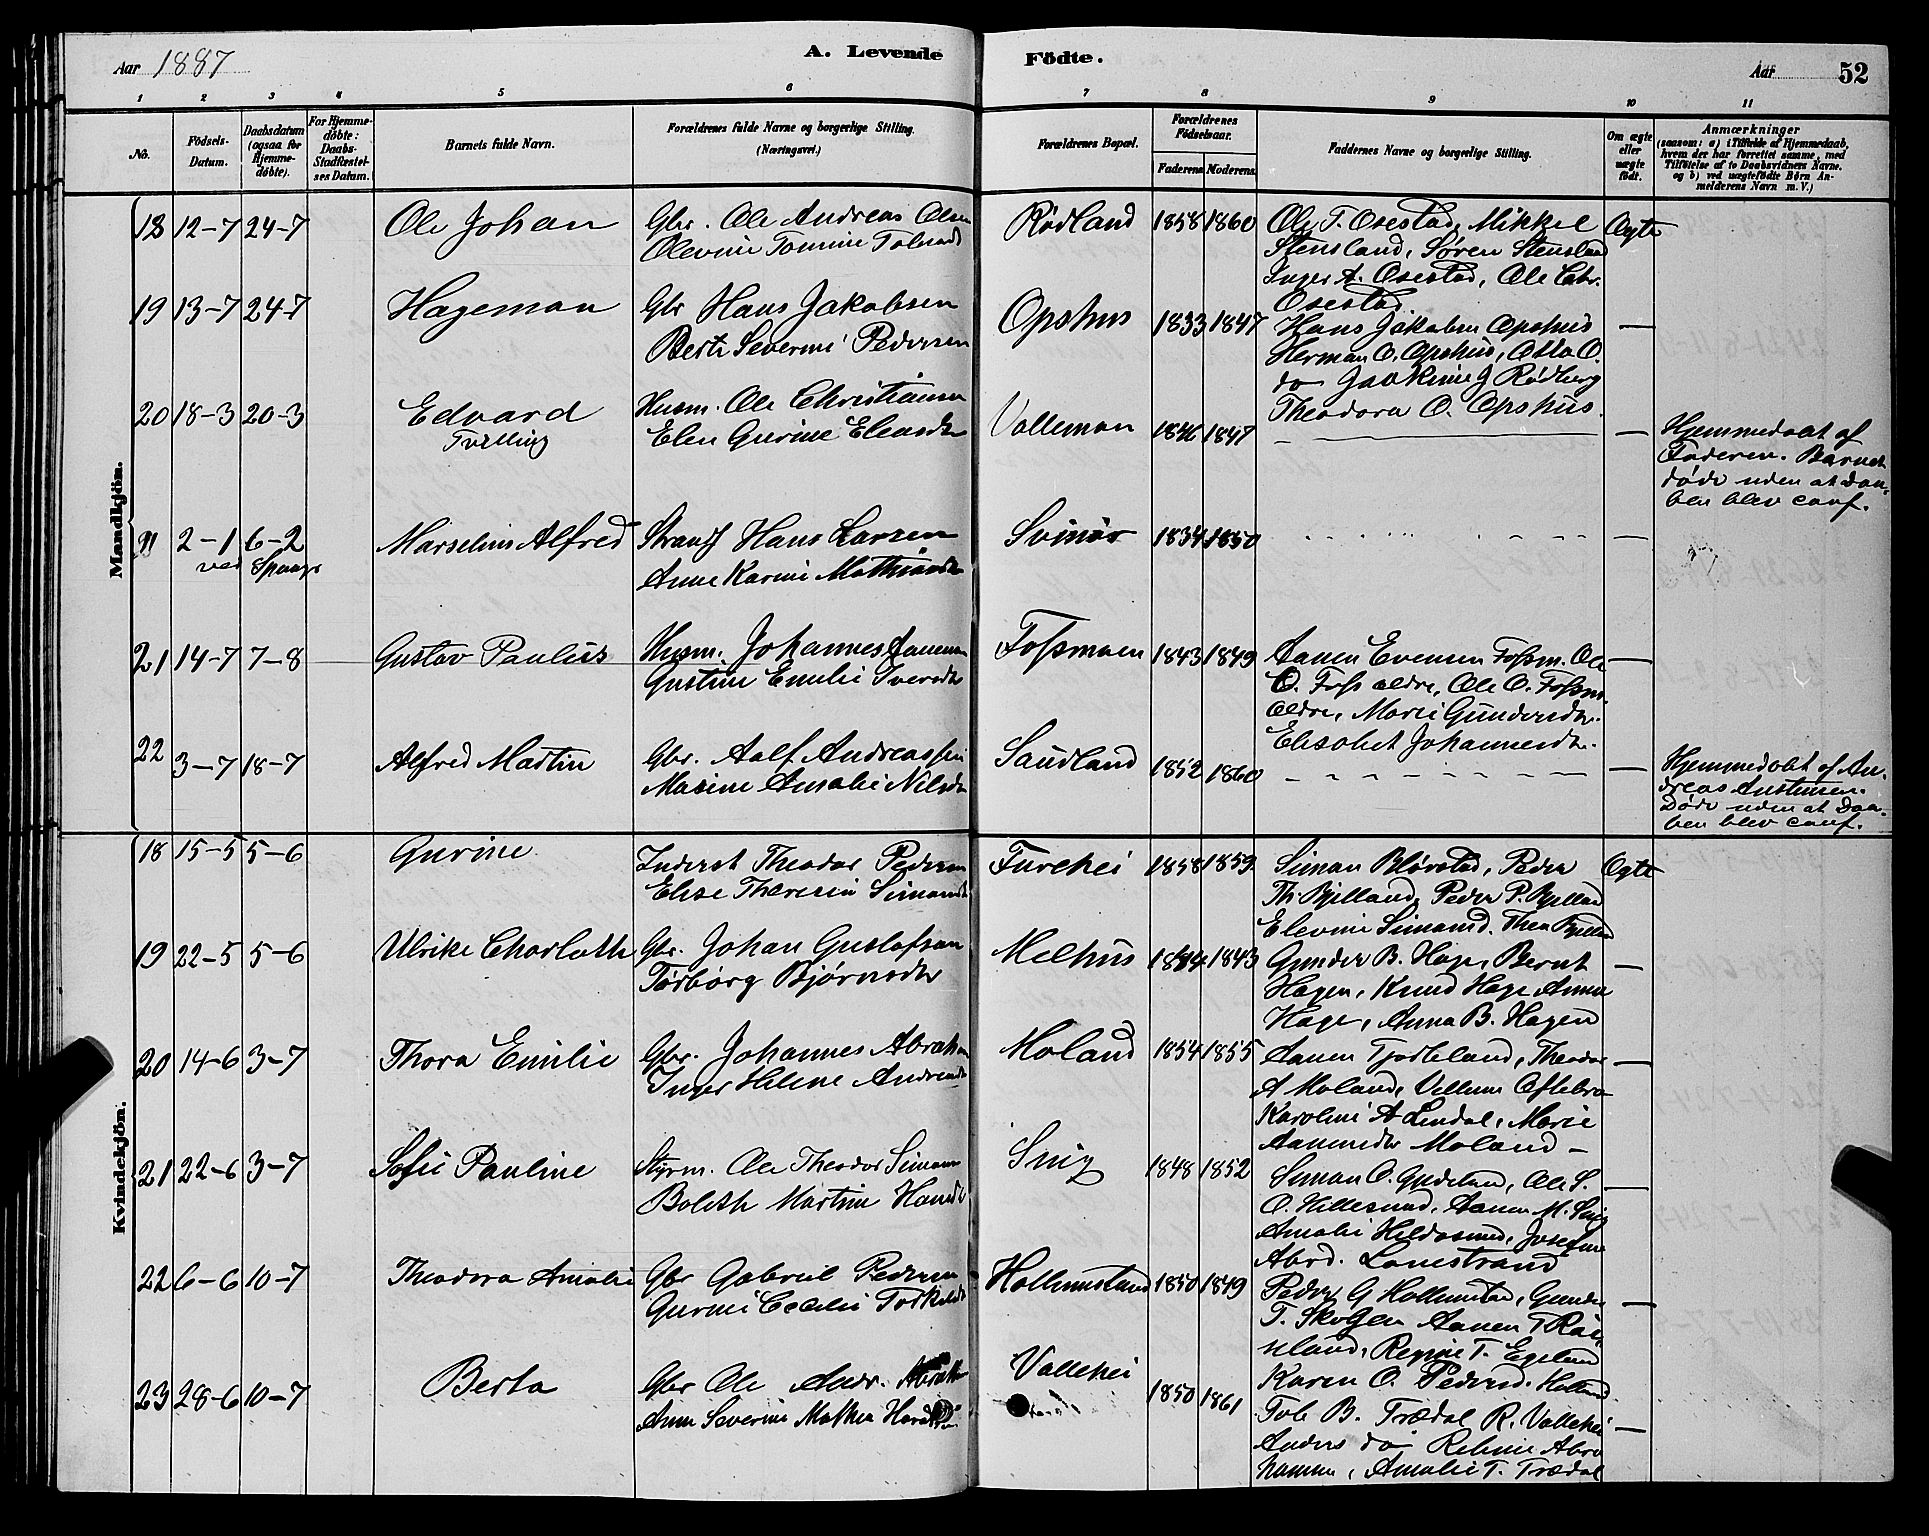 Aar 1887
A. Levende
Födte.
Aar
52
1 2 3 4 5 6 7 8 9 10 11
No.
Födsels-Datum.
Daabsdatum (ogsaa for Hjemme-döbte).
For Hjemme-döbte: Daabs-Stadfæstel-ses Datum.
Barnets fulde Navn.
Forældrenes fulde Navne og borgerlige Stilling. (Næringsvei.)
Forældrenes Bopæl.
Forældrenes Födselsaar.
Faderens Moderens
Faddernes Navne og borgerlige Stilling.
Om ægte eller uægte födt.
Anmærkninger
(saasom: a) i Tilfælde af Hjemmedaab,
hvem der har forrettet samme, med
Tilföielse af to Daabsvidners Navne,
og b) ved uægtefödte Børn An-
melderens Navn m. V.)
Mandkjön.
18 12-7 24-7 Ole Johan
Gbr. Ole Andreas Olsen
Olevine Tomine
Rödland 1858 1860
Ole T. Osestad, Mikkel
Stensland, Søren Stensland
Inger A. Osestad, Ole Chr.
Osestad
Ægte
19 13-7 24-7 Hageman
Gbr Hans Jakobsen
Berte Severine Pedersen
Opshus 1833 1847
Hans Jakobsen Opshus
Herman O. Opshus, Otto O.
do Joakime J Rödberg
Theodora O. Opshus.
—
20 18-3 20-3 Edvard
Tvilling
Husm. Ole Christiansen
Elen Gurine
Valleman 1846 1847
—
Hjemmedøbt af
Faderen. Barnet
døde uden at Daa-
ben blev conf.
2-1 6-2 Marselius Alfred
ved
Hans Larsen
Anne Karine
Svinør 1834 1850
—
21 14-7 7-8 Gustav Paulius
Husm. Johannes Aanensen
Gustine Emilie Iversdtr
Fossmoen 1843 1849
Aanen Evensen Fossm. Ole
O. Foss ældre, Ole O. Fossm.
ældre, Marie Gundersdtr.
Elisabet Johannesdtr.
—
22 3-7 18-7 Alfred Martin
Gbr. Aalf Andreassen
Maxine Amalie Nilsdtr
Saudland 1852 1860
—
Hjemmedøbt af An-
dreas
Døde uden at Daa-
ben blev conf.
Kvindekjön.
18 15-5 5-6 Gurine
Inderst Theodor Pedersen
Elise Theresia Simonsdtr
Furehei 1858 1859
Simon Blørstad, Peder
Th. Bjelland, Peder P. Bjelland
Elevine Simonsd. Thea Bjelland
Ægte
19 22-5 5-6 Ulrike Charlothe
Gbr. Johan Gustafsen
Torborg Bjørnsdtr
Melhus 1844 1843
Gunder B. Hage, Bernt
Hagen, Knud Hage Anna
Hage, Anna B. Hagen
—
20 14-6 3-7 Thora Emilie
Gbr. Johannes Abraham
Inger Helene
Moland 1854 1855
Aanen Tjorteland, Theodor
A Moland, Vellum Oftebro
Karoline A Lindal, Marie
Aanensdtr Moland –
—
21 22-6 3-7 Sofie Pauline
Styrm. Ole Theodor Simonsen
Boleth Martine Hansdtr
Snig 1848 1852
Simon O. Gjeseland, Ole S.
O. Hillesund, Aanen M. Snig
Amalie Hildesund, Josefine
Abrd. Lonestrand
—
22 6-6 10-7 Theodora Amalie
Gbr Gabriel Pedersen
Gurine Cecilie Torkelsdtr
Hollumsland 1850 1849
Peder G Hollumsland, Gunder
T. Skofgen Aanen T Röi-
seland, Regine T. Egeland
Karen O. Pedersd. Holland
—
23 28-6 10-7 Berta
Gbr Ole Andr.
Anne Severine Mathea
Vallehei 1850 1861
Tob B. Trædal R. Vallehei
Anders do Rebine Abra
hamsen, Amalie T. Trædal
—